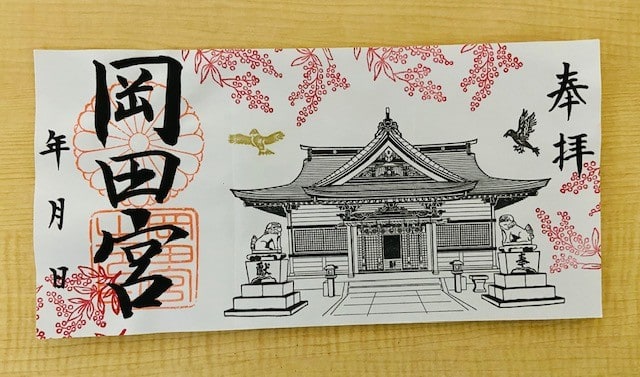 奉拝
奉
献
岡田宮
年月日